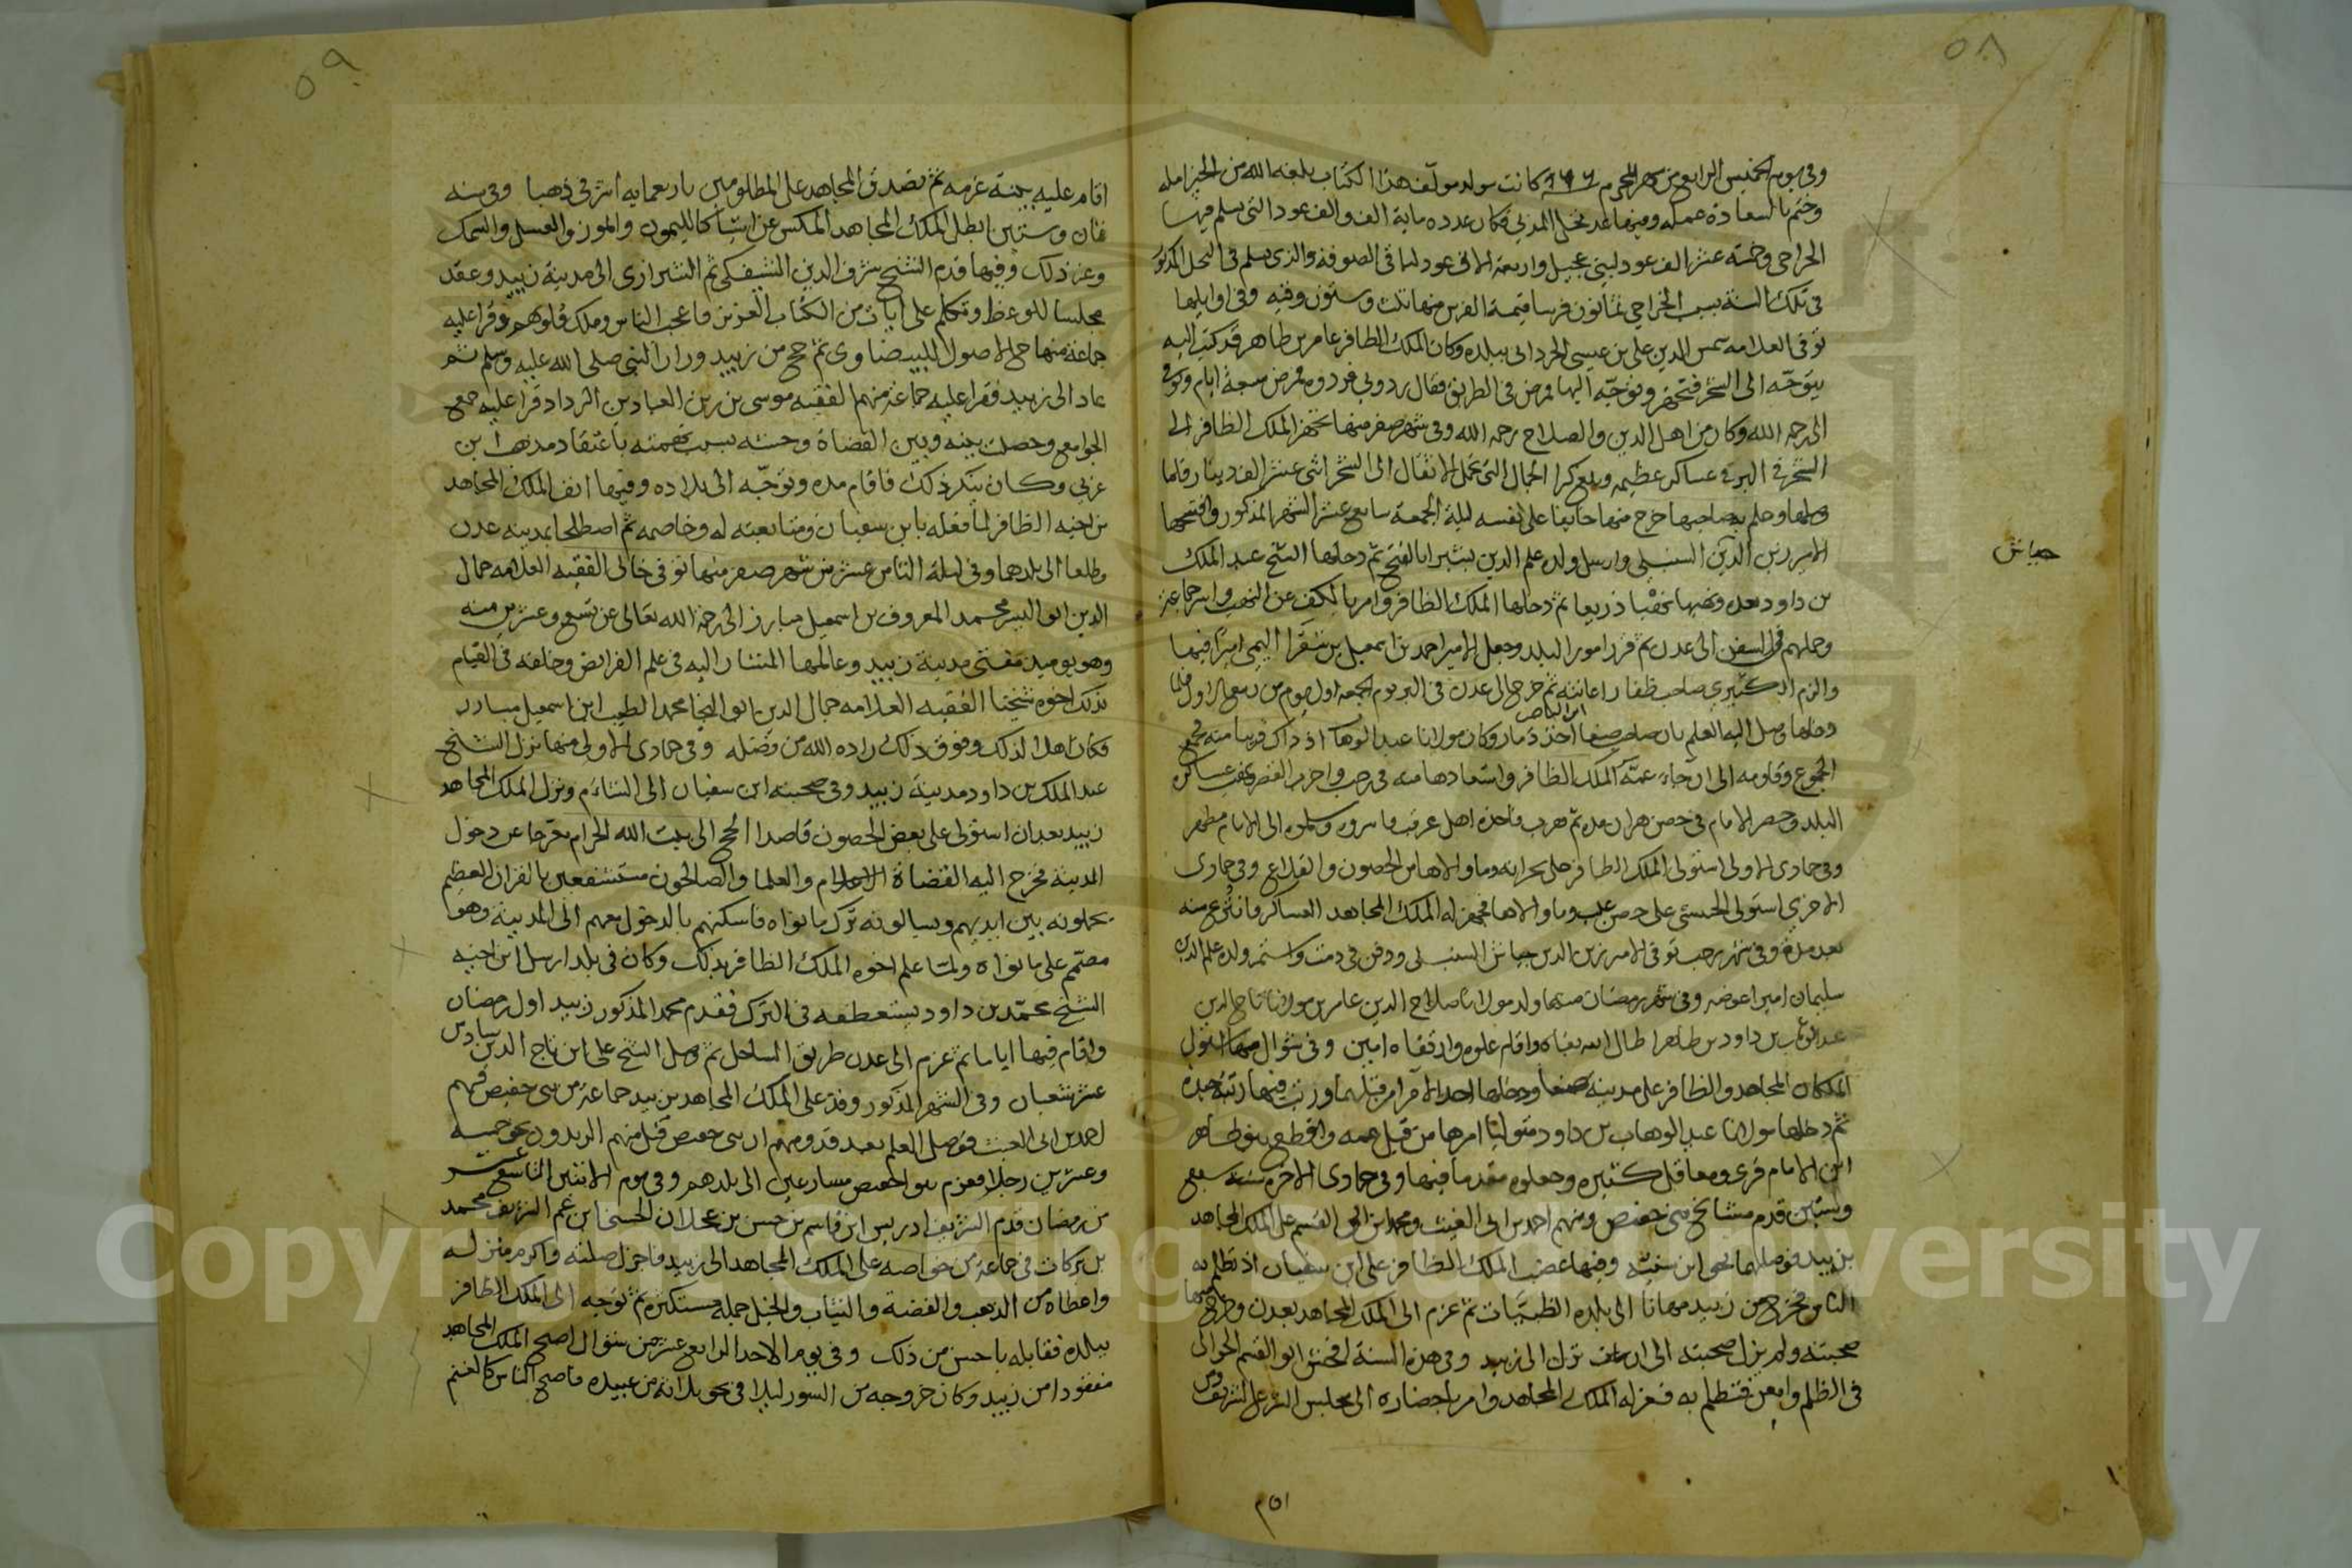 ٥٨
وفي يوم الخميس الرابع من شهر المحرم ٨٦٦ كانت مولد مولف هذا الكتاب بلغه الله من الخير امله
وختم بالسعادة عمله وفيها عد نخل المدني فكان عدده ماية الف والف عود التي يسلم فيها
الخراجي وخمسة عشر الف عود لبني عجيل واربعة الاف عود لباقي الصوفة والذي يسلم في النخل المذكور
في تلك السنة بسبب الخراجي ثمانون فرسا قيمة الفرس منها ثلث وستون وقيه وفي اوايلها
توفى العلامه شمس الدين علي بن عيسى الحرداني ببلده وكان الملك الظافر عامر بن طاهر قد كتب اليه
يتوجه الى الشحر فتجهز وتوجه اليها فمرض في الطريق فقال ردوني فردوه فمرض سبعة ايام وتوفي
الى رحمة الله وكان من اهل الدين والصلاح رحمه الله وفي شهر صفر منها تجهز الملك الظافر الى
الشحر في البر في عساكر عظيمه وبلغ كرا الجمال التي تحمل الاثقال الى الشحر اثنى عشر الف دينار فلما
وصلها وعلم به صاحبها خرج منها خايفا على نفسه ليلة الجمعة سابع عشر الشهر المذكور وافتتحها
الامير زين الدين السنبلي وارسل ولده علم الدين بشيرا بالفتح ثم دخلها الشيخ عبد الملك
جياش
بن داود بعده ونهبها نهبا ذريعا ثم دخلها الملك الظافر وامر بالكف عن النهب واسر جماعة
وحملهم في السفن الى عدن ثم قرر امور البلد وجعل الامير احمد بن اسمعيل بن سنقر اليمى اميرا فيها
والزم الكثيري صاحب ظفار اعانته ثم خرج الى عدن في البر يوم الجمعه اول يوم من ربيع الاول فلما
ابن الناصر
وصلها وصل اليه العلم بان صاحب صنعا اخذ ذمار وكان مولانا عبد الوهاب اذ ذاك قريبا منه فجمع
الجموع وقاومه الى ان جاء عمه الملك الظافر واستعادها منه في رجب واخرب القصر بعض عساكره
البلد وحصر الامام في حصن هران مده ثم هرب فاخذه اهل عرقب فاسروه وسلموه الى الامام مطهر
وفي جمادى الاولى استولى الملك الظافر على بحرانه وما والاها من الحصون والقلاع وفي جمادى
الاخرى استولى الحبشي على حصن وما والاها فجهز له الملك المجاهد العساكر فانتزع منه
بعد مدة وفي شهر رجب توفى الامير زين الدين جياش السنبلي ودفن في دمت واستمر ولده علم الدين
سليمان اميرا عوضه وفي شهر رمضان منها ولد مولانا صلاح الدين عامر بن مولانا تاج الدين
عبد الوهاب بن داود بن طاهر اطال الله بقاه وادام علوه وارتقاه امين وفي شوال منها استولى
الملكان المجاهد والظافر على مدينة صنعا ودخلها احد الامرا من قبلهما ورتب فيها رتبة جيده
ثم دخلها مولانا عبد الوهاب بن داود متوليا امرها من قبل عمه واقطع بنو طاهر
ابن الامام قرى ومعاقل كثيره وجعلوه مقدما فيها وفي جمادى الاخره سنة سبع
وستين قدم مشايخ بني حفيص ومنهم احمد بن ابي الغيث ومحمد ابن ابي القسم على الملك المجاهد
بزبيد فوصلهما نحو ابن سفين وفيها غضب الملك الظافر على ابن سفيان اذ تظلم به
الناس فخرج من زبيد مهانا الى بلده الظبيات ثم عزم الى الملك المجاهد بعدن وخرج
صحبته ولم يزل صحبته الى ان نزل الى زبيد وفي هذه السنة افحش ابو القسم الحوالى
في الظلم وامعن فتظلم به فعزله الملك المجاهد وامر باحضاره الى مجلس الشرع الشريف
٥٩
اقام عليه بينة غرمه ثم تصدق المجاهد على المظلومين باربعمايه اشرفي ذهبا وفي سنه
ثمان وستين ابطل الملك المجاهد المكس عن اشيا كالليمون والموز والعسل والسمك
وغير ذلك وفيها قدم الشيخ شرف الدين الشيفكي ثم الشيرازي الى مدينة زبيد وعقد
مجلسا للوعظ وتكلم على ايات من الكتاب العزيز فاعجب الناس وملك قلوبهم وقرا عليه
جماعة منهاج الاصول للبيضاوي ثم حج من زبيد وزار النبي صلى الله عليه وسلم ثم
عاد الى زبيد فقرا عليه جماعة منهم الفقيه موسى بن زين العابدين الرداد قرا عليه جمع
الجوامع وحصلت بينه وبين القضاة وحشه بسبب تهمته باعتقاد مذهب ابن
عربي وكان ينكر ذلك فاقام مده وتوجه الى بلاده وفيها انف الملك المجاهد
من اخيه الظافر لما فعله بابن سفيان ومتابعته له وخاصمه ثم اصطلحا بمدينه عدن
وطلعا الى بلدهما وفي ليلة الثامن عشر من شهر صفر منها توفى خالى الفقيه العلامه جمال
الدين ابو السر محمد المعروف بن اسمعيل مبارز الى رحمة الله تعالى عن تسع وعشرين سنه
وهو يوميذ مفتي مدينة زبيد وعالمها المشار اليه في علم الفرايض وخلفه في القيام
بذلك اخوه شيخنا الفقيه العلامه جمال الدين ابو النجا محمد الطيب ابن اسمعيل مبارز
فكان اهلا لذلك وفوق ذلك زاده الله من فضله وفي جمادى الاولى منها نزل الشيخ
عبد الملك بن داود مدينة زبيد وفي صحبته ابن سفيان الى الشام ونزل الملك المجاهد
زبيد بعد ان استولى على بعض الحصون قاصدا الحج الى بيت الله الحرام معرجا عن دخول
المدينه فخرج اليه القضاة الاعلام والعلما والصالحون مستشفعين بالقران العظيم
يحملونه بين ايديهم ويسالونه ترك ما نواه فاسكنهم بالدخول معهم الى المدينة وهو
مصمم على ما نواه ولما علم اخوه الملك الظافر بذلك وكان في بلده ارسل ابن اخيه
الشيخ محمد بن داود يستعطفه في الترك فقدم محمد المذكور زبيد اول رمضان
واقام فيها اياما ثم عزم الى عدن طريق الساحل ثم وصل الشيخ علي ابن تاج الدين سادس
عشر شعبان وفي الشهر المذكور وفد على الملك المجاهد بزبيد جماعة من بني حفيص فيهم
احمد بن ابي الغيث فوصل العلم بعد قدومهم ان بني حفيص قتل منهم الزيديون نحو خمسه
وعشرين رجلا فعزم بنو الحفيص مسارعين الى بلدهم وفي يوم الاثنين التاسع عشر
من رمضان قدم الشريف ادريس ابن قاسم بن حسن بن عجلان الحسني ابن عم الشريف محمد
بن بركات في جماعة من خواصه على الملك المجاهد الى زبيد فاجزل صلته واكرم منزله
واعطاه من الذهب والفضة والثياب والخيل جمله مستكثره ثم توجه الى الملك الظافر
ببلده فقابله باحسن من ذلك وفي يوم الاحد الرابع عشر من شوال اصبح الملك المجاهد
مفقودا من زبيد وكان خروجه من السور ليلا في نحو ثلاثة من عبيده فاصبح الناس كالغنم
Copyright © King Saud University